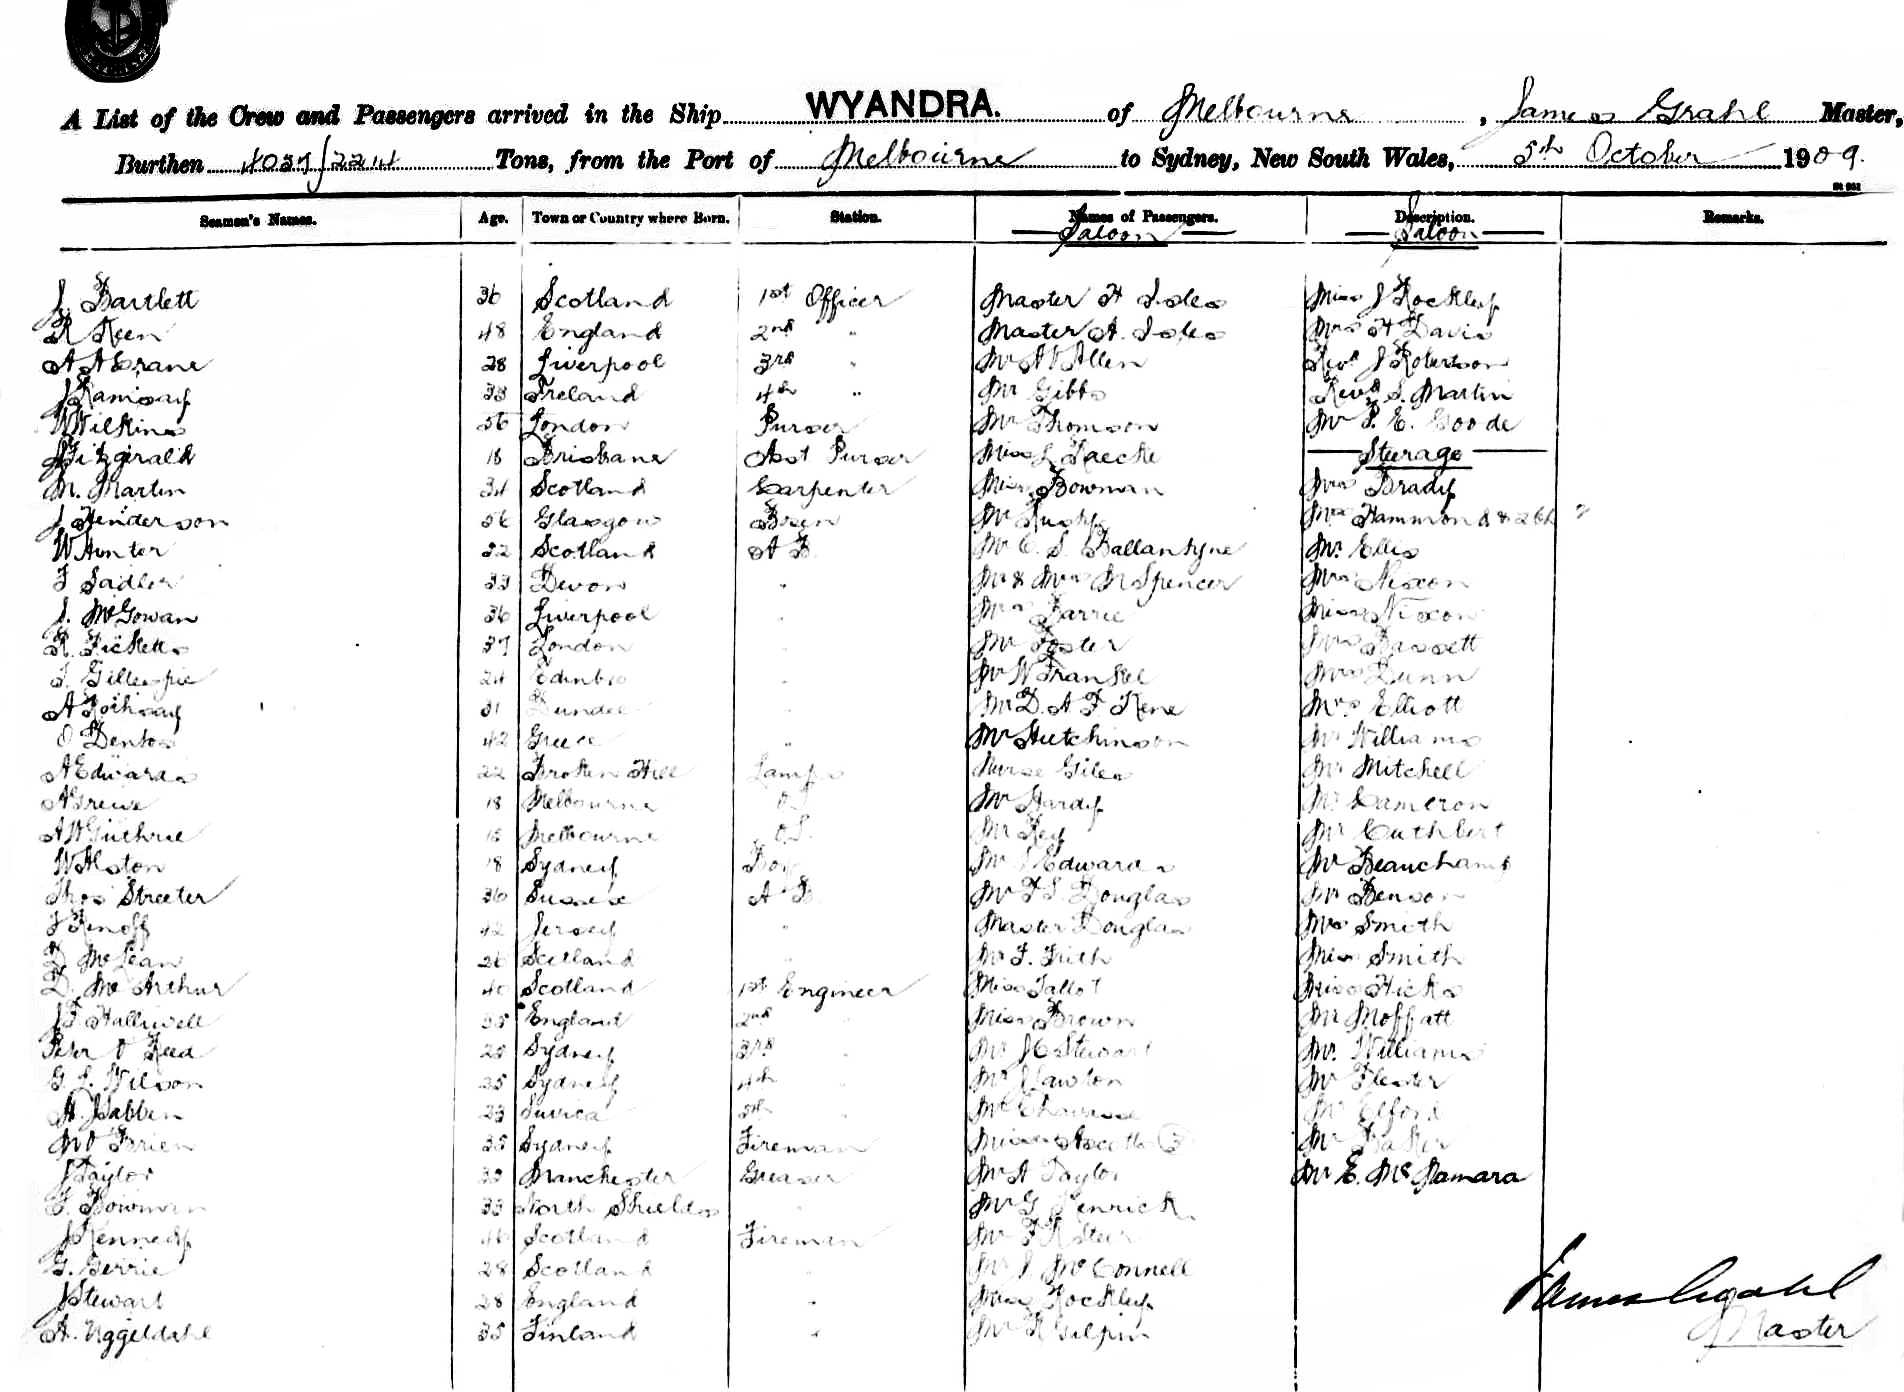 A List of the Crew and Passengers arrived in the Ship WYANDRA. of Melbourne, James Grahl Master,
Burthen 4037/2214 Tons, from the Port of Melbourne to Sydney, New South Wales, 5th October 1909.
Seamen's Names. Age. Town or Country where Born. Station. Names of Passengers. Description. Remarks.
Saloon Saloon
J. Bartlett 36 Scotland 1st Officer Master H Isles Miss J Rockley
R Keen 48 England 2nd " Master A. Isles Mrs H Davis
A A Crane 28 Liverpool 3rd " Mr A V Allen Revd J Robertson
J Ramsay 33 Ireland 4th " Mr Gibbs Revd S. Martin
W Wilkins 56 London Purser Mr Thomson Mr P. E. Goode
Fitzgerald 18 Brisbane Asst Purser Miss L Raecke Steerage
M. Martin 34 Scotland Carpenter Miss Bowman Mrs Brady
J Henderson 56 Glasgow Mr Mrs Hammond & 2 Ch
W Hunter 22 Scotland A B. Mr C. S. Ballantyne Mr. Ellis
F Sadler 33 Devon " Mr & Mrs M Spencer Mrs Nixon
J. McGowan 36 Liverpool " Mrs Barrie Miss Nixon
R. Ricketts 37 London " Mr Foster Mrs Bassett
J. Gillespie 24 Edinbro " Mr W Frankel Mrs Dunn
A Rothsay 31 Dundee " Mr D. A F. Kene Mrs Elliott
42 Greece " Mr Hutchinson Mr Williams
A Edwards 22 Broken Hill Lamps Nurse Giles Mr Mitchell
A Grewe 18 Melbourne O.S. Mr Hardy Mr Cameron
A W Guthrie 18 Melbourne O.S. Mr Key Mr Cuthbert
W Alston 18 Sydney Boy Mr J Edwards Mr Beauchamp
Thos Streeter 36 Sussex A B. Mr F S Douglas Mr Benson
J Renoff 42 Jersey " Master Douglas Mrs Smith
D McLean 26 Scotland " Mr F. Frith Miss Smith
D. McArthur 40 Scotland 1st Engineer Miss Talbot Miss Hicks
J F Halliwell 35 England 2nd " Miss Brown Mr Moffatt
Peter V Reed 25 Sydney 3rd " Mr J C Stewart Mr. Williams
G L. Wilson 25 Sydney 4th " Mr J Lawton Mr
A. Jabben 23 5th " Mr Mr Elford
M O'Brien 35 Sydney Fireman Misses (3) Mr Baker
J Taylor 33 Manchester Greaser Mr A Taylor Mr E. McNamara
F. Bowman 33 North Shields " Mr G Penrick
J Kennedy 46 Scotland Fireman Mr F
G. Gerrie 28 Scotland " Mr J McConnell
J Stewart 28 England " Miss Rockley
A. Uggeldahl 35 Finland " Mr R Gilpin
James Grahl
Master